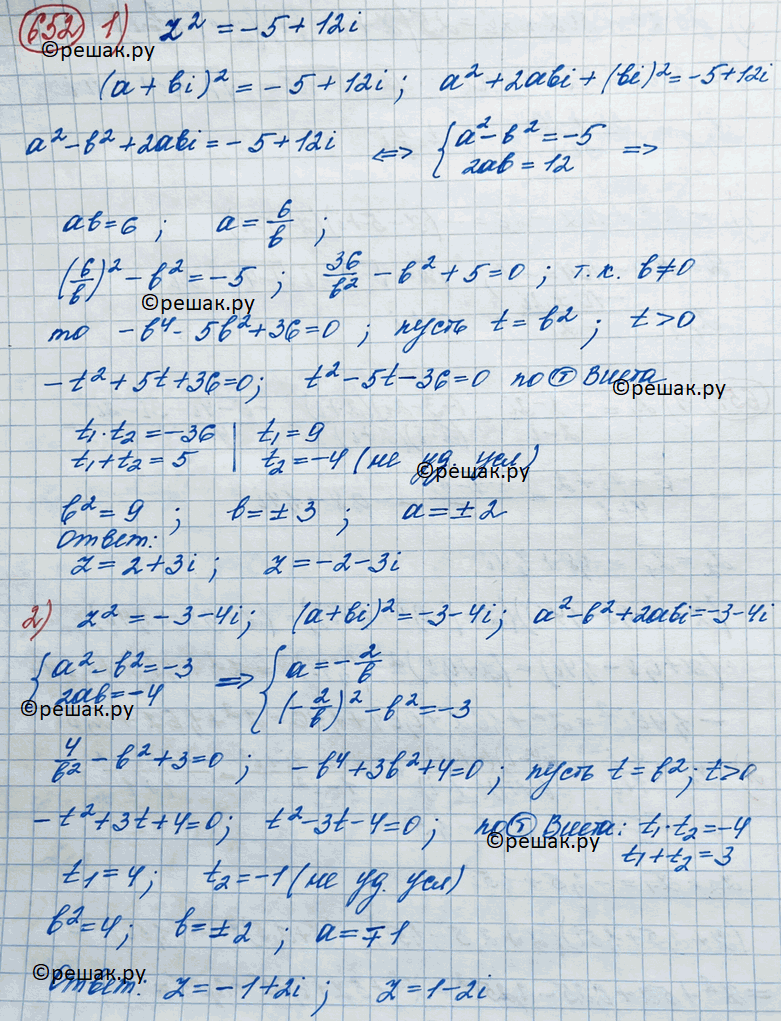 652 1) z² = -5 + 12i
©решак.ру
(a + bi)² = -5 + 12i ; a² + 2abi + (bi)² = -5 + 12i
a² - b² + 2abi = -5 + 12i <=> { a² - b² = -5 =>
2ab = 12
ab = 6 ; a = 6/b ;
(6/b)² - b² = -5 ; 36/b² - b² + 5 = 0 ; т.к. b ≠ 0
©решак.ру
то -b⁴ - 5b² + 36 = 0 ; пусть t = b² ; t > 0
-t² + 5t + 36 = 0 ; t² - 5t - 36 = 0 по Ⓣ Виета
©решак.ру
t₁ · t₂ = -36 | t₁ = 9
t₁ + t₂ = 5 | t₂ = -4 (не уд. усл)
©решак.ру
b² = 9 ; b = ± 3 ; a = ± 2
Ответ:
z = 2 + 3i ; z = -2 - 3i
2) z² = -3 - 4i ; (a + bi)² = -3 - 4i ; a² - b² + 2abi = -3 - 4i
{ a² - b² = -3 => { a = -2/b
2ab = -4 (-2/b)² - b² = -3
©решак.ру
4/b² - b² + 3 = 0 ; -b⁴ + 3b² + 4 = 0 ; пусть t = b² ; t > 0
-t² + 3t + 4 = 0 ; t² - 3t - 4 = 0 ; по Ⓣ Виета: t₁ · t₂ = -4
©решак.ру
t₁ + t₂ = 3
t₁ = 4 ; t₂ = -1 (не уд. усл)
b² = 4 ; b = ± 2 ; a = ∓ 1
©решак.ру
Ответ: z = -1 + 2i ; z = 1 - 2i